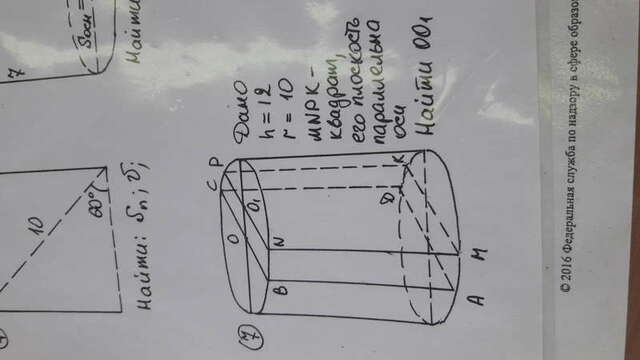 10
60°
7
Sосн =
Найти: Sп; V;
Найти
7
C
P
O
O₁
B
N
D
K
A
M
Дано
h = 12
r = 10
MNPK –
квадрат,
его плоскость
параллельна
оси
Найти OO₁
© 2016 Федеральная служба по надзору в сфере образо